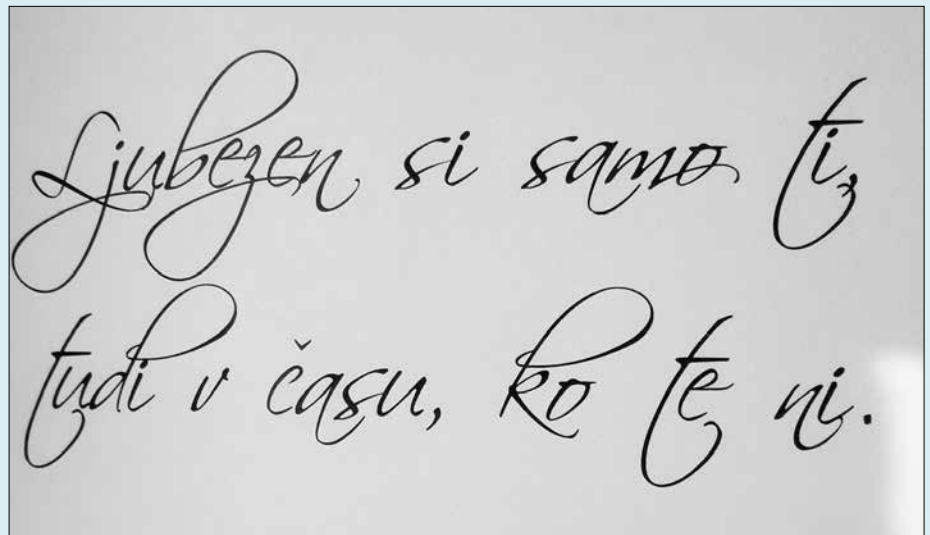 Ljubezen si samo ti,
tudi v času, ko te ni.